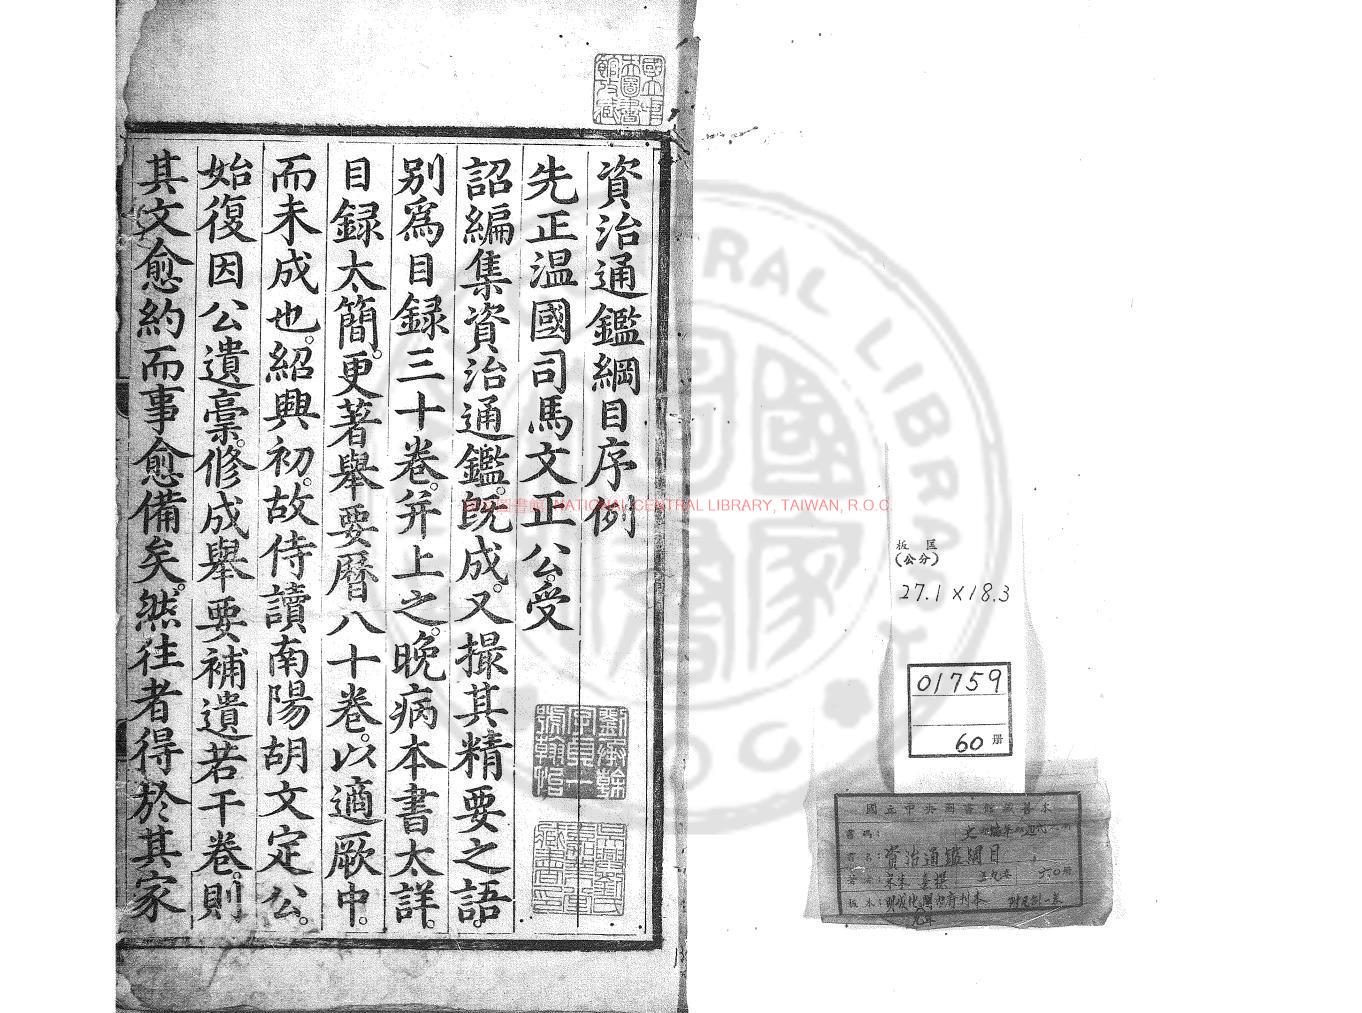 資治通鑑綱目序例
先正溫國司馬文正公。受
詔編集資治通鑑。旣成。又撮其精要之語。
别爲目録三十卷。并上之。晚病本書太詳。
目録太簡。更著舉要曆八十卷。以適厥中。
而未成也。紹興初。故侍讀南陽胡文定公。
始復因公遺稾。修成舉要補遺若干卷。則
其文愈約而事愈備矣。然往者得於其家
國立中央圖書館收藏
NATIONAL CENTRAL LIBRARY, TAIWAN, R.O.C.
板 匡
(公分)
27.1 x 18.3
01759
60 册
國立中央圖書館藏善本
書名：資治通鑑綱目